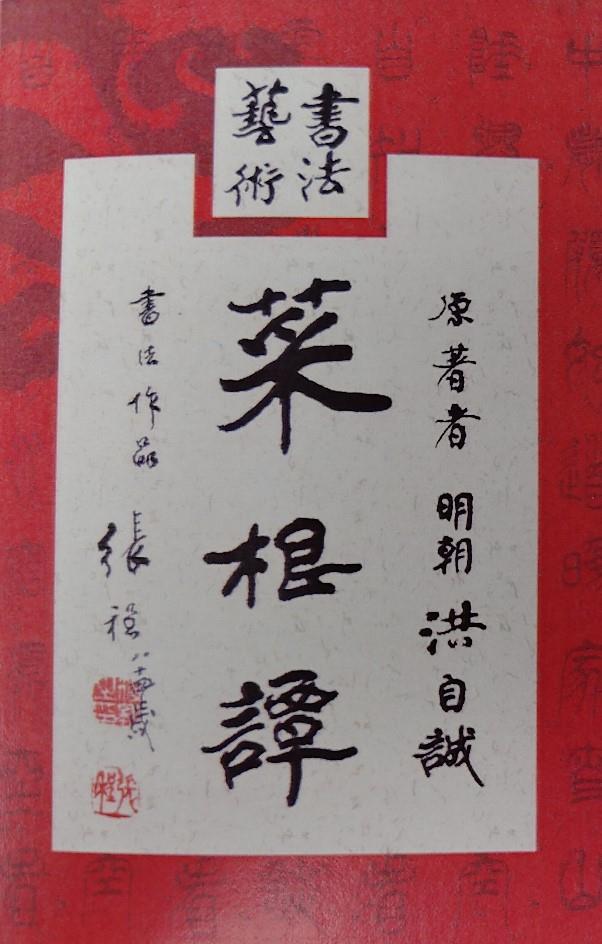 書法
藝術
原著者 明朝 洪自誠
菜根譚
書法作品 張程